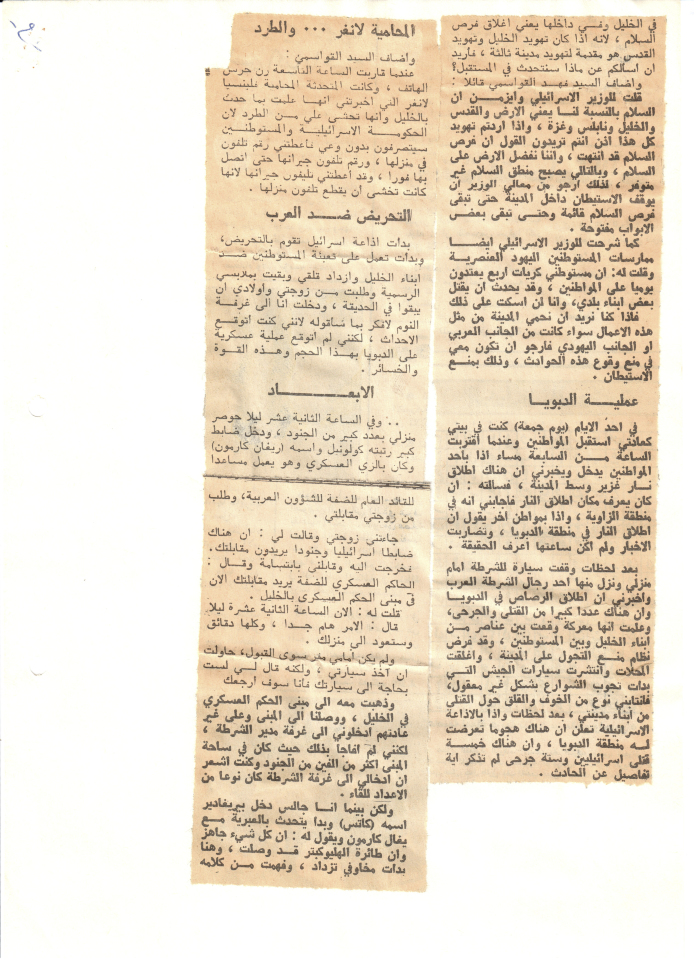 في الخليل وفي داخلها يعني اغلاق فرص
السلام ، لانه اذا كان تهويد الخليل وتهويد
القدس هو مقدمة لتهويد مدينة ثالثة ، فاريد
ان اسالكم عن ماذا سنتحدث في المستقبل؟
واضاف السيد فهد القواسمي قائلا :
قلت للوزير الاسرائيلي وايزمن ان
السلام بالنسبة لنا يعني الارض والقدس
والخليل ونابلس وغزة ، واذا اردتم تهويد
كل هذا اذن انتم تريدون القول ان فرص
السلام قد انتهت ، واننا نفضل الارض على
السلام ، وبالتالي يصبح منطق السلام غير
متوفر ، لذلك ارجو من معالي الوزير ان
يوقف الاستيطان داخل المدينة حتى تبقى
فرص السلام قائمة وحتى تبقى بعض
الابواب مفتوحة .
كما شرحت للوزير الاسرائيلي ايضا
ممارسات المستوطنين اليهود العنصرية
وقلت له: ان مستوطني كريات اربع يعتدون
يوميا على المواطنين ، وقد يحدث ان يقتل
بعض ابناء بلدي، وانا لن اسكت على ذلك
فاذا كنا نريد ان نحمي المدينة من مثل
هذه الاعمال سواء كانت من الجانب العربي
او الجانب اليهودي فارجو ان تكون معي
في منع وقوع هذه الحوادث ، وذلك بمنع
الاستيطان .
عملية الدبويا
في احد الايام (يوم جمعة) كنت في بيتي
كعادتي استقبل المواطنين وعندما اقتربت
الساعة من السابعة مساء اذا باحد
المواطنين يدخل ويخبرني ان هناك اطلاق
نار غزير وسط المدينة ، فسالته : ان
كان يعرف مكان اطلاق النار فاجابني انه في
منطقة الزاوية ، واذا بمواطن اخر يقول ان
اطلاق النار في منطقة الدبويا ، وتضاربت
الاخبار ولم اكن ساعتها أعرف الحقيقة .
بعد لحظات وقفت سيارة للشرطة امام
منزلي ونزل منها احد رجال الشرطة العرب
واخبرني ان اطلاق الرصاص في الدبويا
وان هناك عددا كبيرا من القتلى والجرحى،
وعلمت انها معركة وقعت بين عناصر من
ابناء الخليل وبين المستوطنين ، وقد فرض
نظام منع التجول على المدينة ، واغلقت
المحلات وانتشرت سيارات الجيش التي
بدات تجوب الشوارع بشكل غير معقول،
فانتابني نوع من الخوف والقلق حول القتلى
من ابناء مدينتي ، بعد لحظات واذا بالاذاعة
الاسرائيلية تعلن ان هناك هجوما تعرضت
له منطقة الدبويا ، وان هناك خمسة
قتلى اسرائيليين وستة جرحى لم تذكر اية
تفاصيل عن الحادث .
المحامية لانغر ... والطرد
واضاف السيد القواسمي :
عندما قاربت الساعة التاسعة رن جرس
الهاتف ، وكانت المتحدثة المحامية فليتسيا
لانغر التي اخبرتني انها علمت بما حدث
بالخليل وانها تخشى علي من الطرد لان
الحكومة الاسرائيلية والمستوطنين
سيتصرفون بدون وعي فاعطتني رقم تلفون
في منزلها ، ورقم تلفون جيرانها حتى اتصل
بها فورا ، وقد اعطتني تليفون جيرانها لانها
كانت تخشى ان يقطع تلفون منزلها .
التحريض ضد العرب
بدات اذاعة اسرائيل تقوم بالتحريض،
وبدات تعمل على تعبئة المستوطنين ضد
ابناء الخليل وازداد قلقي وبقيت بملابسي
الرسمية وطلبت من زوجتي واولادي ان
يبقوا في الحديقة ، ودخلت انا الى غرفة
النوم لافكر بما ساقوله لانني كنت اتوقع
الاحداث ، لكنني لم اتوقع عملية عسكرية
على الدبويا بهذا الحجم وهذه القوة
والخسائر .
الابعاد
.. وفي الساعة الثانية عشر ليلا حوصر
منزلي بعدد كبير من الجنود ، ودخل ضابط
كبير رتبته كولونيل واسمه (ريغان كارمون)
وكان بالزي العسكري وهو يعمل مساعدا
للقائد العام للضفة للشؤون العربية، وطلب
من زوجتي مقابلتي .
جاءتني زوجتي وقالت لي : ان هناك
ضابطا اسرائيليا وجنودا يريدون مقابلتك.
فخرجت اليه وقابلني بابتسامة وقال :
الحاكم العسكري للضفة يريد مقابلتك الان
في مبنى الحكم العسكري بالخليل .
قلت له : الان الساعة الثانية عشرة ليلا
قال : الامر هام جدا ، وكلها دقائق
وستعود الى منزلك .
ولم يكن أمامي مفر سوى القبول، حاولت
ان آخذ سيارتي ، ولكنه قال لي لست
بحاجة الى سيارتك فانا سوف ارجعك
وذهبت معه الى مبنى الحكم العسكري
في الخليل ، ووصلنا الى المبنى وعلى غير
عادتهم ادخلوني الى غرفة مدير الشرطة ،
لكنني لم افاجا بذلك حيث كان في ساحة
المبنى اكثر من الفين من الجنود وكنت اشعر
ان ادخالي الى غرفة الشرطة كان نوعا من
الاعداد للقاء .
ولكن بينما انا جالس دخل بيريغادير
اسمه (كاتس) وبدا يتحدث بالعبرية مع
يغال كارمون ويقول له : ان كل شيء جاهز
وان طائرة الهليوكبتر قد وصلت ، وهنا
بدات مخاوفي تزداد ، وفهمت من كلامه